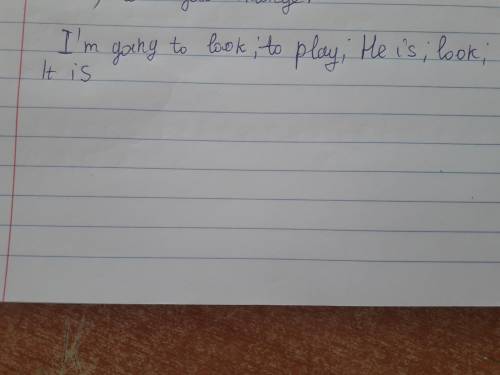 I'm going to look; to play; He is; look;
It is